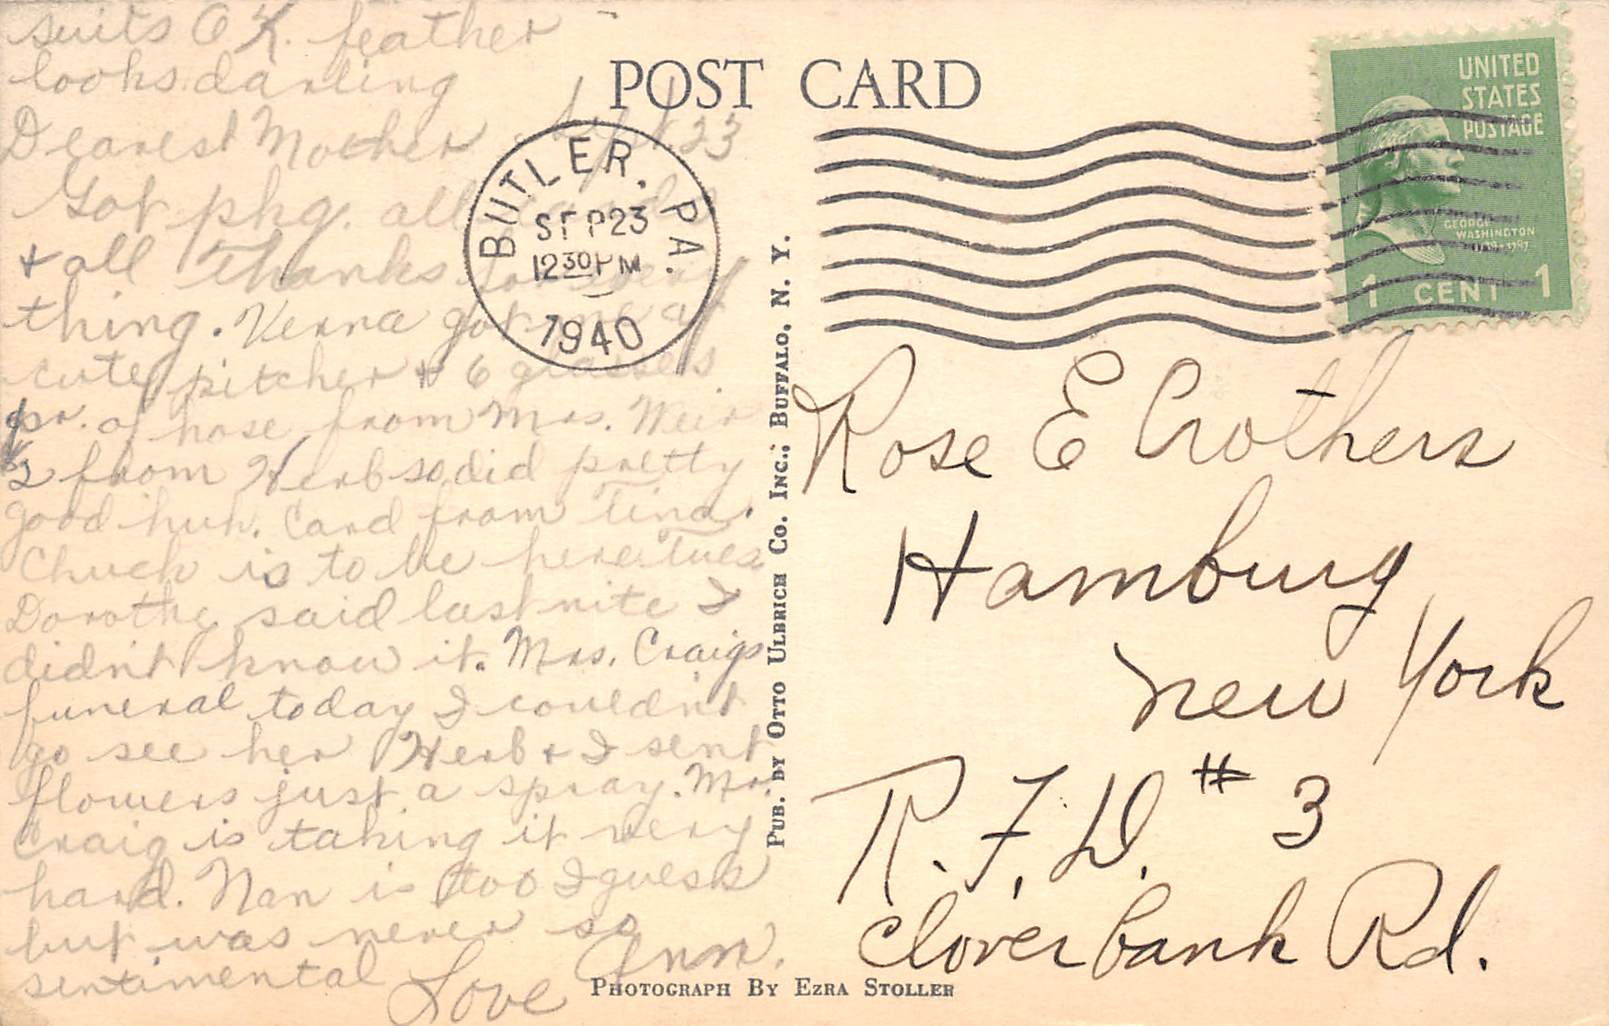 suits OK. feather
looks darling
Dearest Mother Sept 23
Got pkg. all
& all thanks for every
thing. Verna got me a
cute pitcher & 6 glasses
pr. of hose from Mrs. Weir
from Herb so did pretty
good huh. Card from Tina.
Chuck is to be here tues
Dorothy said last nite I
didn't know it. Mrs. Craigs
funeral today I couldn't
go see her Herb & I sent
flowers just a spray. Mr.
Craig is taking it very
hard. Nan is too I guess
but was never so
sentimental Love Ann.
POST CARD
BUTLER, PA.
SEP 23
12 30 PM
1940
PUB. BY OTTO ULBRICH CO. INC., BUFFALO, N. Y.
UNITED
STATES
POSTAGE
GEORGE
WASHINGTON
1789-1797
1 CENT 1
Rose E Crothers
Hamburg
New York
R.F.D. # 3
Cloverbank Rd.
PHOTOGRAPH BY EZRA STOLLER